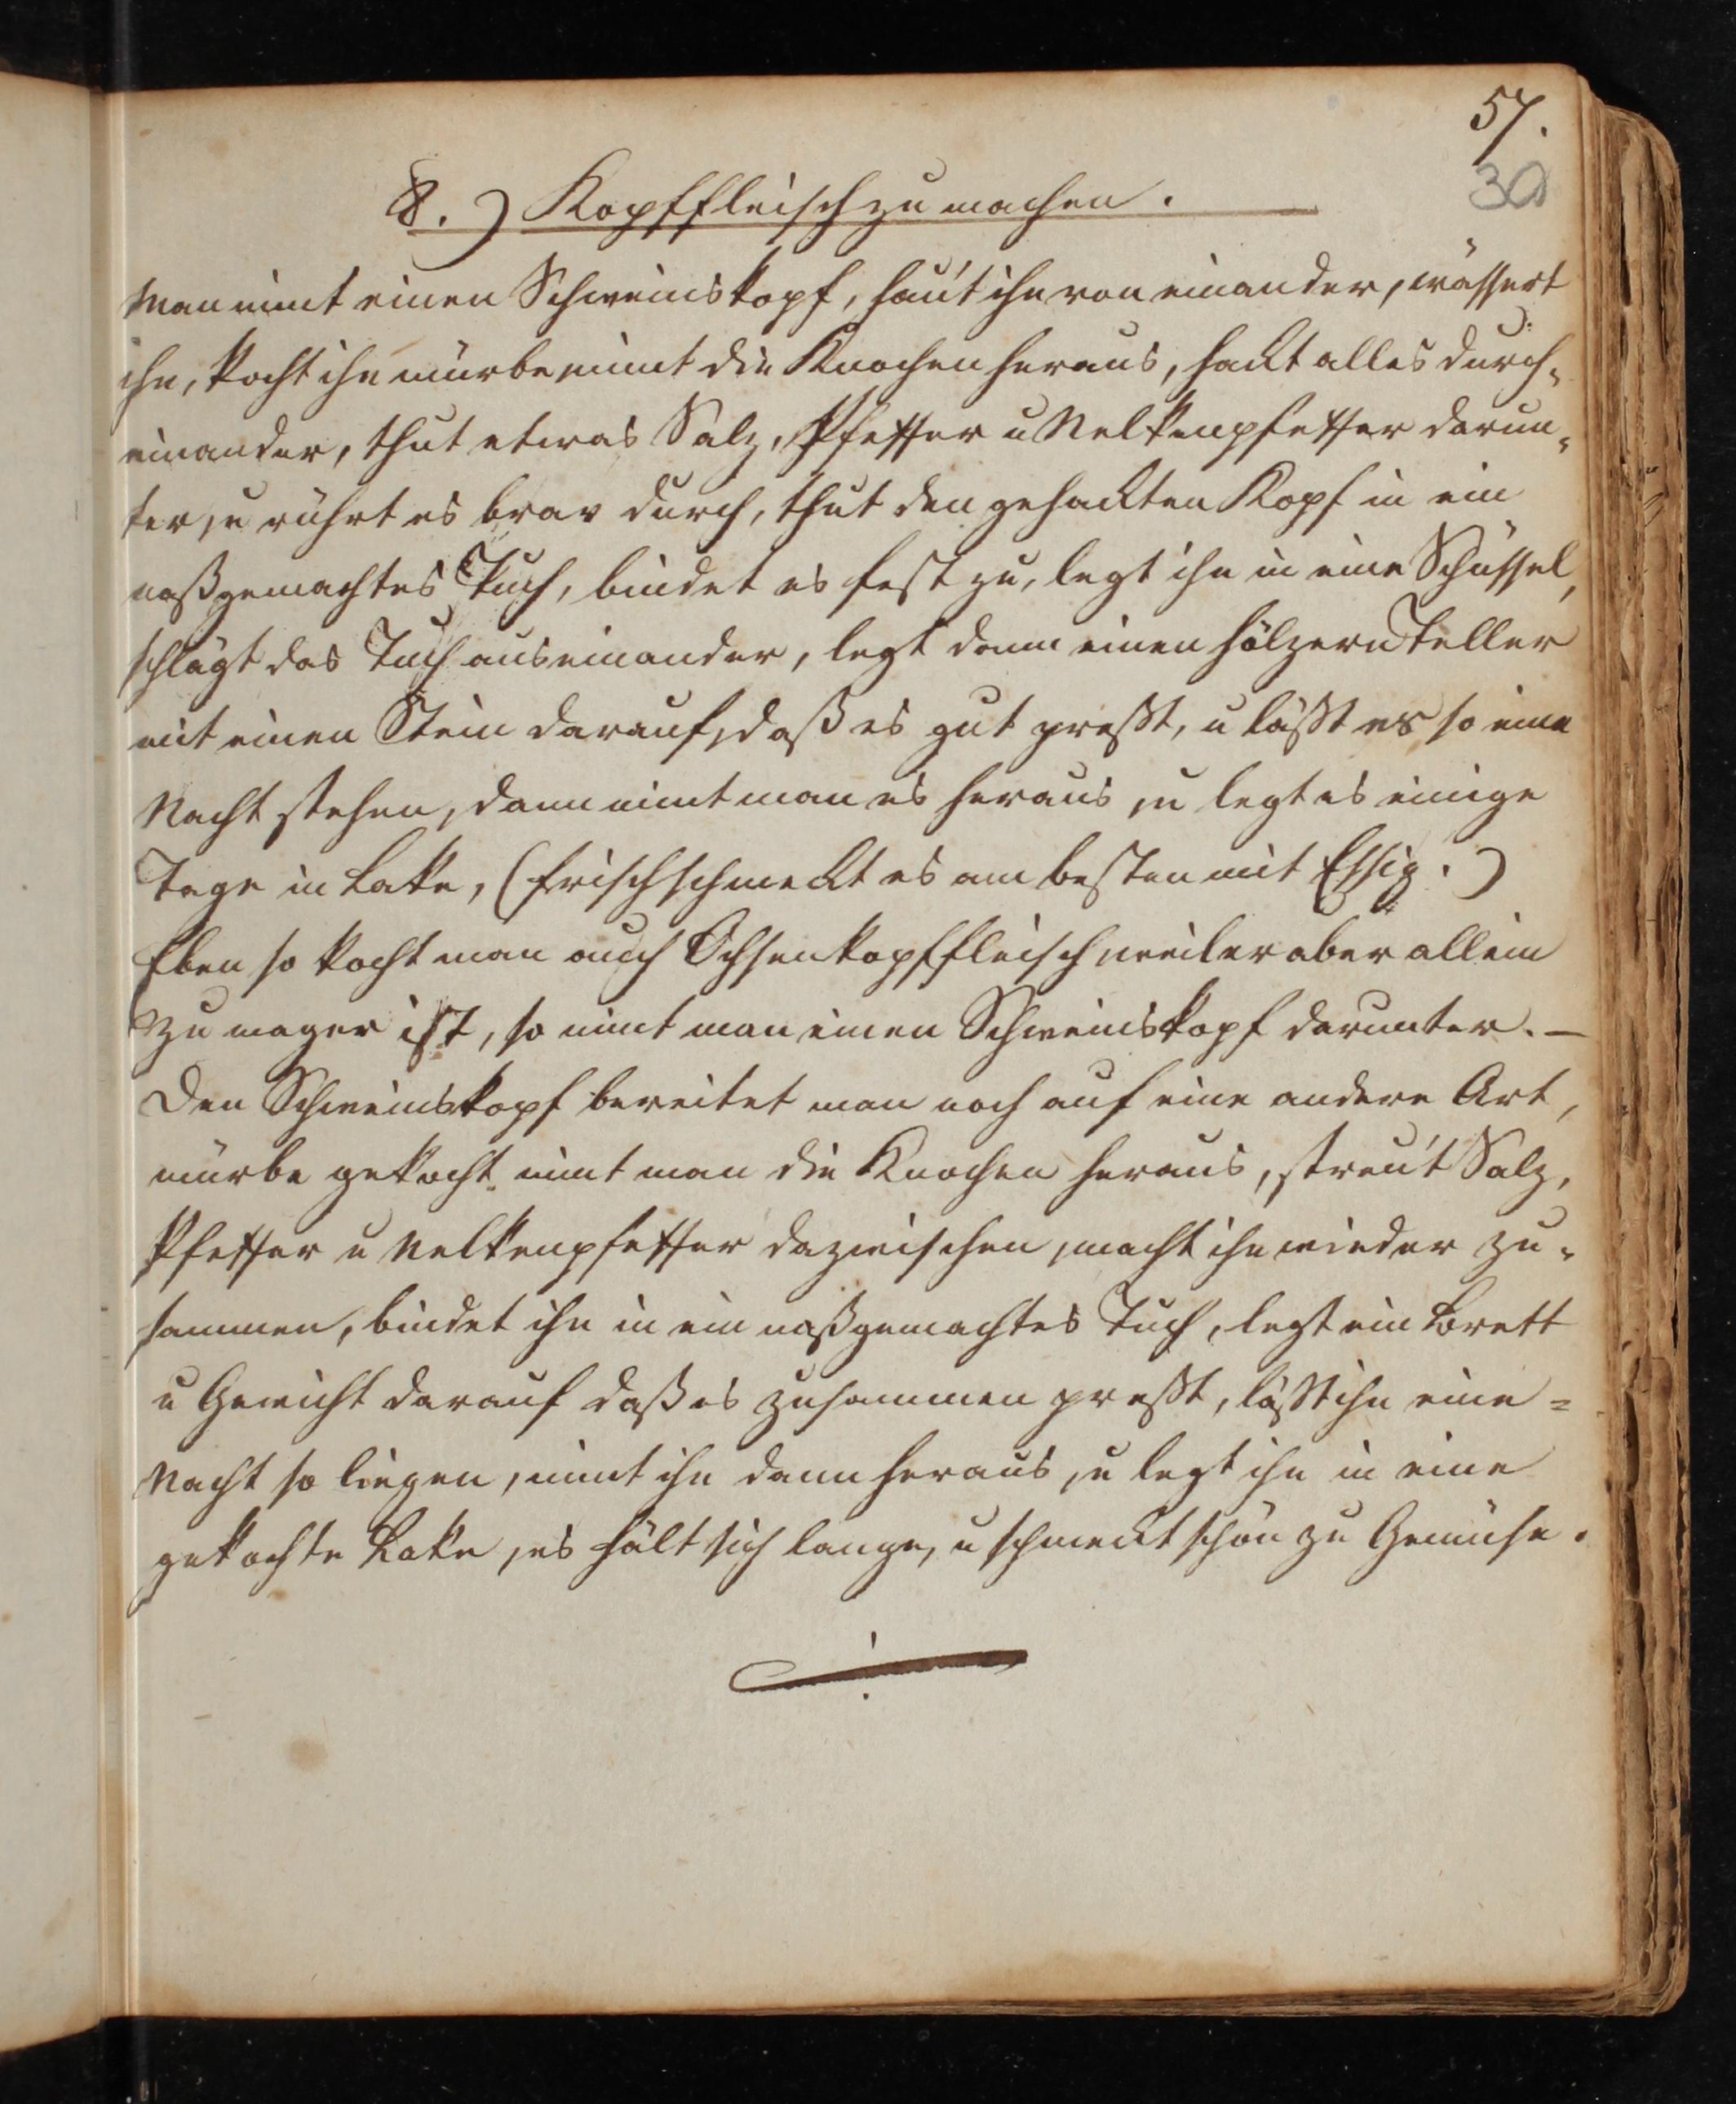 57.
30
8.) Kopffleisch zu machen.
Man nimt einen Schweinskopf, haut ihn von einander, wässert
ihn, kocht ihn mürbe, nimt die Knochen heraus, hackt alles durch-
einander, thut etwas Salz, Pfeffer u Nelkenpfeffer darun-
ter, u rührt es brav durch, thut den gehackten Kopf in ein
naßgemachtes Tuch, bindet es fest zu, legt ihn in eine Schüssel,
schlägt das Tuch auseinander, legt dann einen hölzern Teller
mit einen Stein darauf, daß es gut preßt, u läßt es so eine
Nacht stehen, dann nimt man es heraus, u legt es einige
Tage in Lake, (frisch schmeckt es am besten mit Essig.)
Eben so kocht man auch Ochsenkopffleisch weil er aber allein
zu mager ist, so nimt man einen Schweinskopf darunter. —
Den Schweinskopf bereitet man noch auf eine andere Art,
mürbe gekocht nimt man die Knochen heraus, streut Salz,
Pfeffer u Nelkenpfeffer dazwischen, macht ihn wieder zu-
sammen, bindet ihn in ein naßgemachtes Tuch, legt ein Brett
u Gewicht darauf daß es zusammen preßt, läßt ihn eine=
Nacht so liegen, nimt ihn dann heraus, u legt ihn in eine
gekochte Lake, es hält sich lange, u schmeckt schön zu Gemüse.